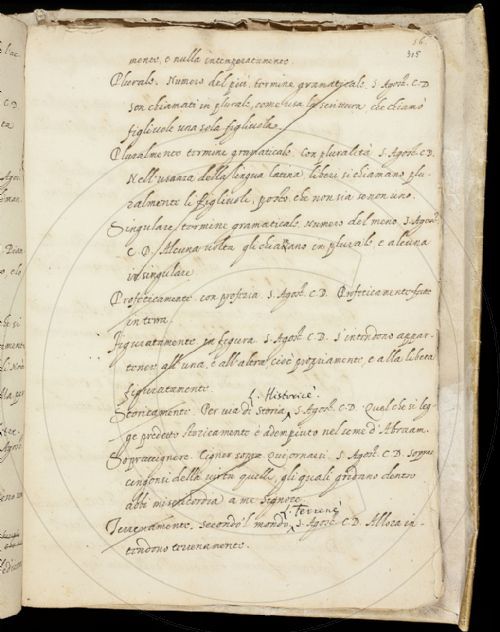 16.
315
mente, e nulla intemperatamente.
Plurale. Numero del piu, termine gramaticale. S. Agost. C. D.
son chiamati in plurale, come usa la scrittura, che chiamò
figliuole una sola figliuola.
Pluralmente termine gramaticale. con pluralità. S. Agost. C. D.
Nell'usanza della lingua latina liberi si chiamano plu-
ralmente li figliuoli, posto che non sia se non uno.
Singulare termine gramaticale. Numero del meno. S. Agost.
C. D. Alcuna volta gli chiamano in plurale e alcuna
in singulare
Profeticamente con profezia. S. Agost. C. D. Profeticamente
in terra.
Figuratamente in figura. S. Agost. C. D. S'intendono appar-
tenere all'una, e all'altra cioè propriamente e alla libera
figuratamente
l. Historicè
Storicamente. Per via di storia S. Agost. C. D. Quel che si leg-
ge predetto storicamente è adempiuto nel seme d'Abraam.
Sopraccignere. Cigner sopra S. Agost. C. D. Soprac
cingonsi della virtù quelli, gli quali gridano dentro
abbi misericordia a me Signore
l. Terrenè
Terrenamente. secondo 'l mondo S. Agost. C. D. Allora in-
tendono terrenamente.